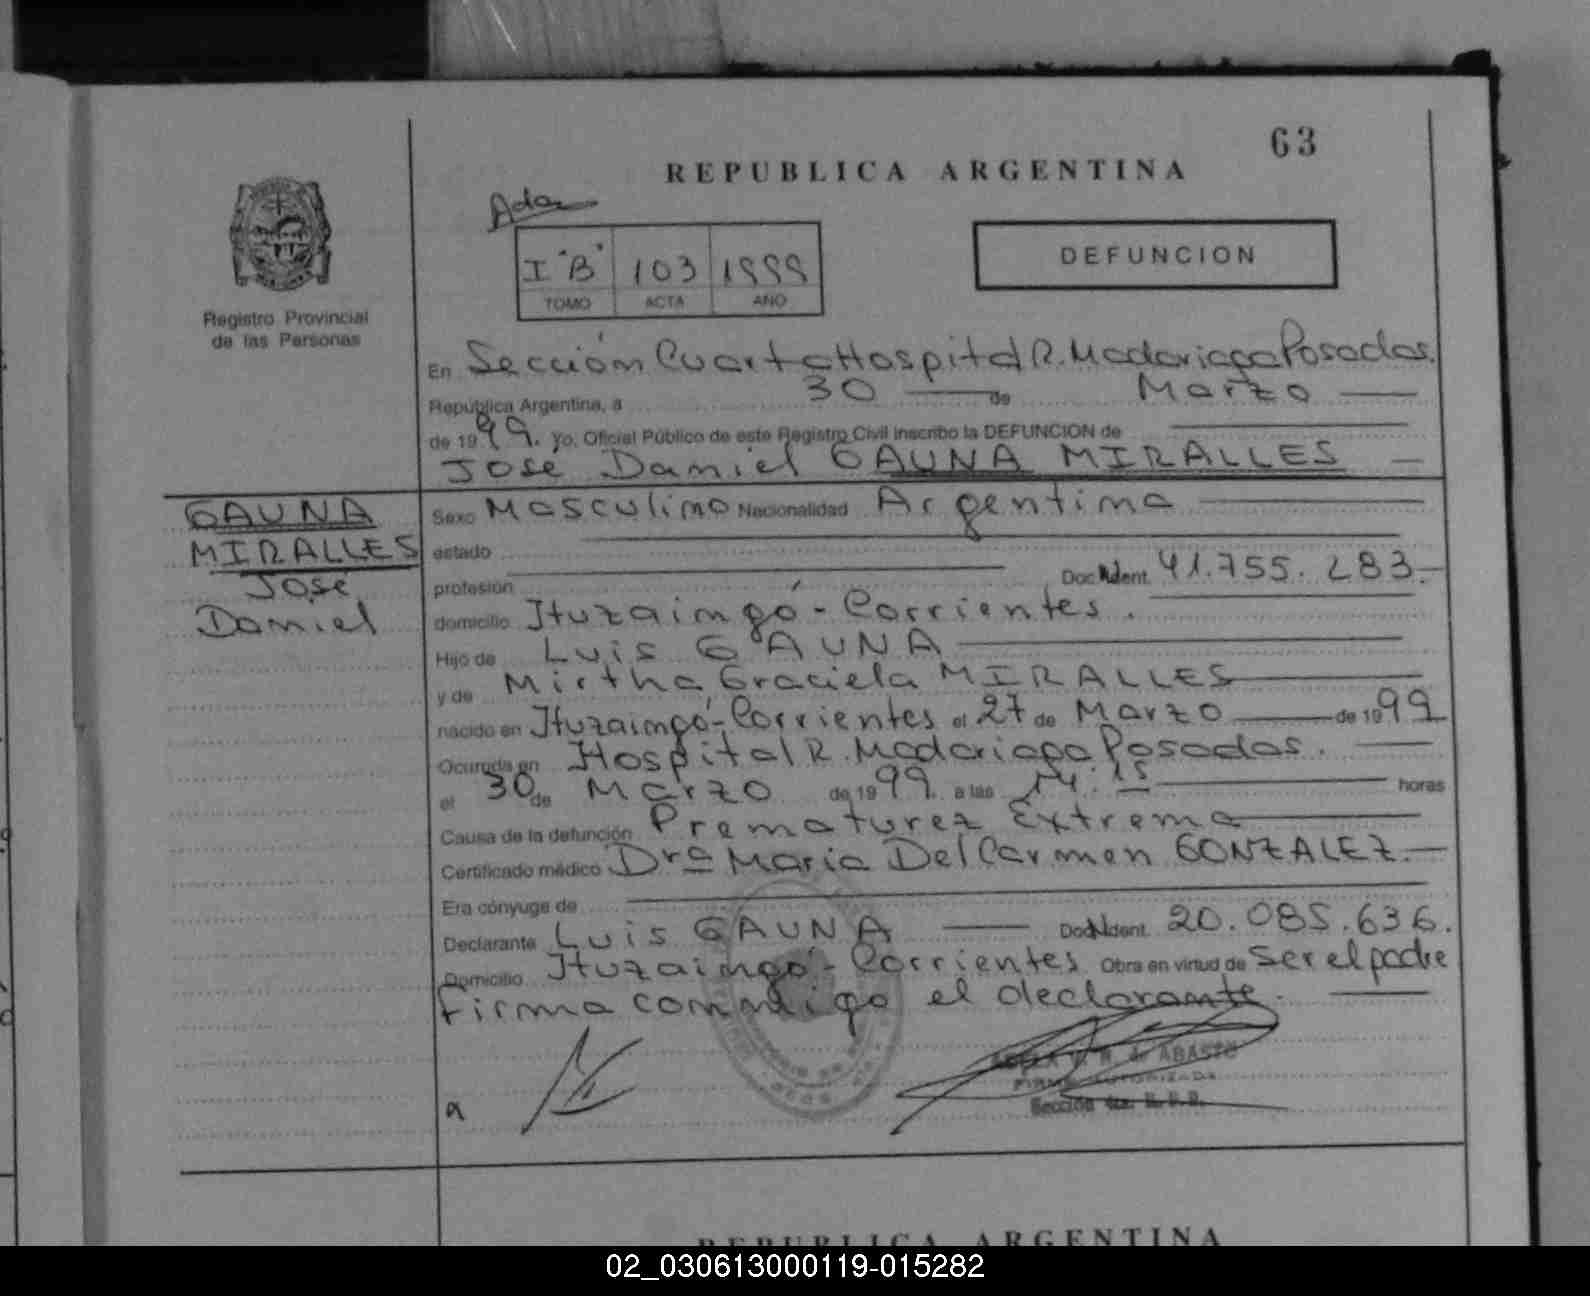 63
REPUBLICA ARGENTINA
I "B" 103 1999
TOMO ACTA AÑO
DEFUNCION
Registro Provincial
de las Personas
En Sección Cuarta Hospital R. Madariaga Posadas.
República Argentina, a 30 de Marzo
de 1999. yo, Oficial Público de este Registro Civil inscribo la DEFUNCION de
José Daniel GAUNA MIRALLES
GAUNA
MIRALLES
José
Daniel
Sexo Masculino Nacionalidad Argentina
estado
profesión Doc. Ident. 41.755.283.
domicilio Ituzaingó - Corrientes.
Hijo de Luis GAUNA
y de Mirtha Graciela MIRALLES
nacido en Ituzaingó - Corrientes el 27 de Marzo de 1999
Ocurrida en Hospital R. Madariaga Posadas.
el 30 de Marzo de 1999. a las 14:15 horas
Causa de la defunción Prematurez Extrema
Certificado médico Dra Maria Del Carmen GONZALEZ.
Era cónyuge de
Declarante Luis GAUNA Doc. Ident. 20.085.636.
Domicilio Ituzaingó - Corrientes Obra en virtud de Ser el padre
firma conmigo el declarante.
de ABASTO
FIRMA AUTORIZADA
Sección 4ta. R.P.P.
a
REPUBLICA ARGENTINA
02_030613000119-015282